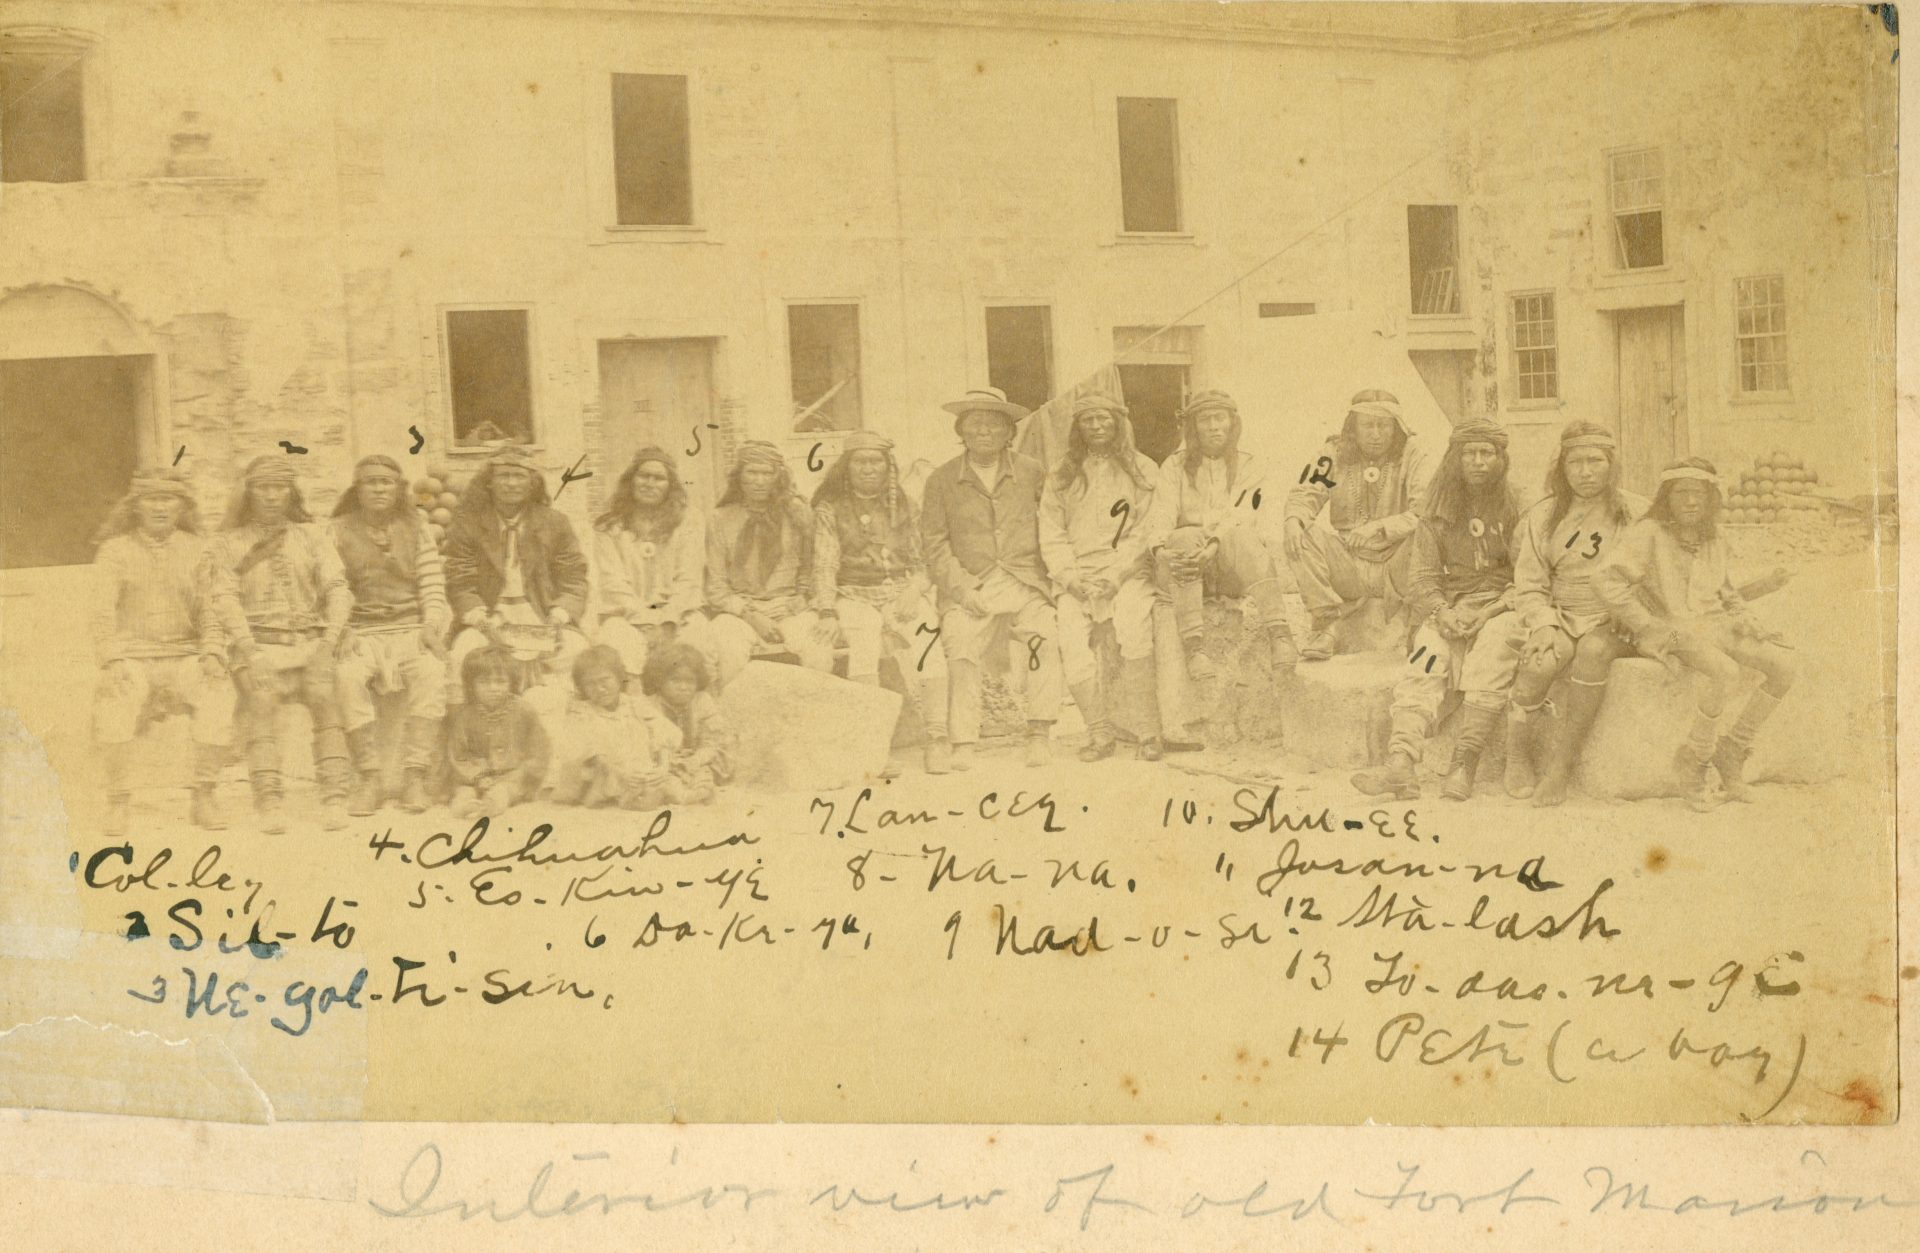 1 2 3 4 5 6 7 8 9 10 12 11 13
1 Col-ley
2 Sil-to
3 NE-gol-Ti-sin,
4. Chihuahua
5. Es-Kin-yE
6 Da-Kr-ya,
7. Lan-cEy.
8- Na-na.
9
10. Shu-EE.
11 Josan-na
12 Sta-lash
13
14 PEtE (a boy)
Interior view of old Fort Marion